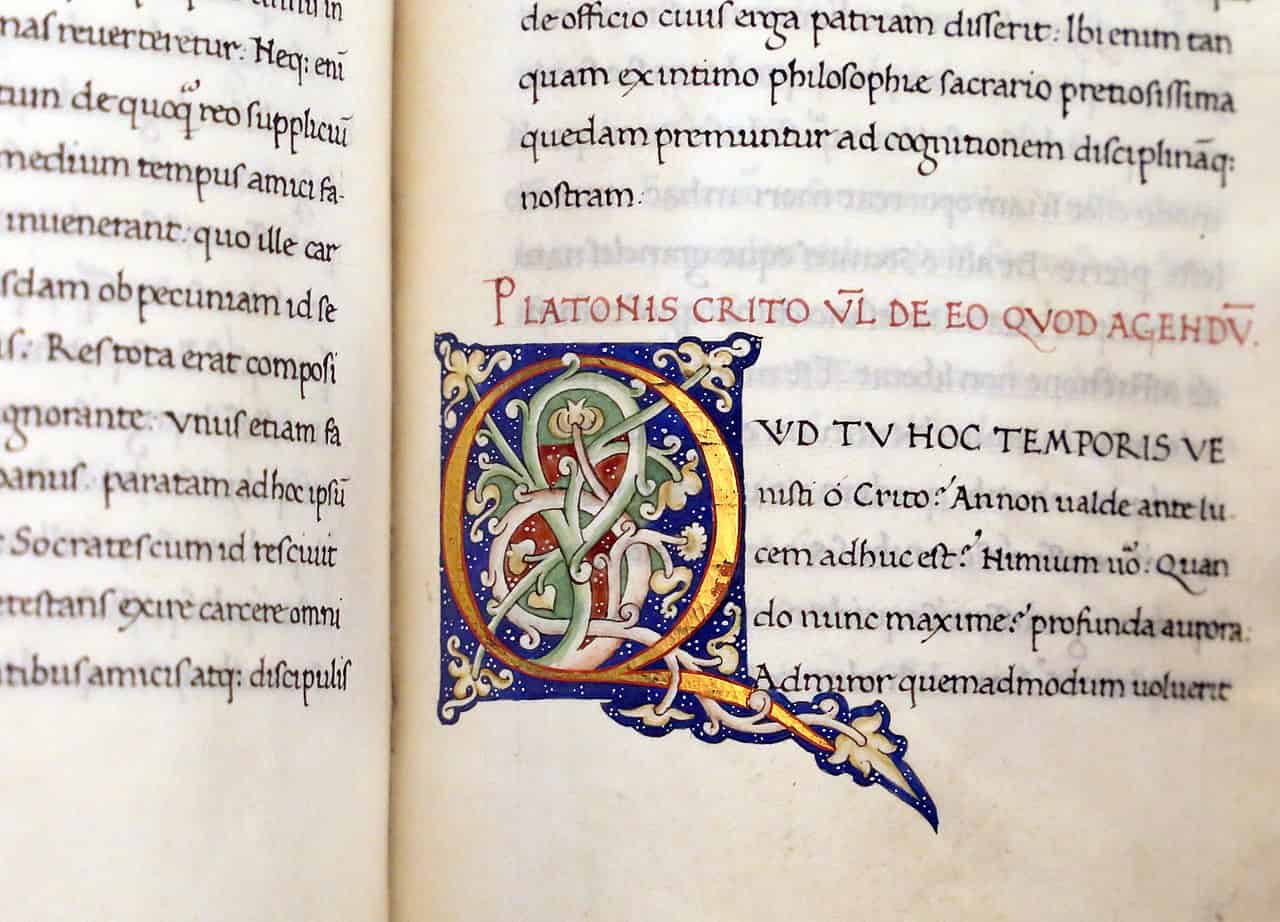 nas reuerteretur: Heq: eni̅
tum de quoq̃ reo supplicuı̅
medium tempus amici fa-
inuenerant: quo ille car
sdam ob pecuniam id se
us: Res tota erat composi
gnorante: Vnus etiam fa
banus: paratam ad hoc ipsu̅
Socrates cum id resciuit
etestans exire carcere omni
tibus amicis atq: discipulis
de officio ciuis erga patriam disserit: Ibi enim tan
quam ex intimo philosophie sacrario pretiosissima
quedam premuntur ad cognitionem disciplina̅q:
nostram:
PLATONIS CRITO VL̅ DE EO QVOD AGENDV̅.
QVVD TV HOC TEMPORIS VE
nisti ó Crito? An non ualde ante lu
cem adhuc est? Nimium uo̊: Quan
do nunc maxime? profunda aurora:
Admiror quemadmodum uoluerit